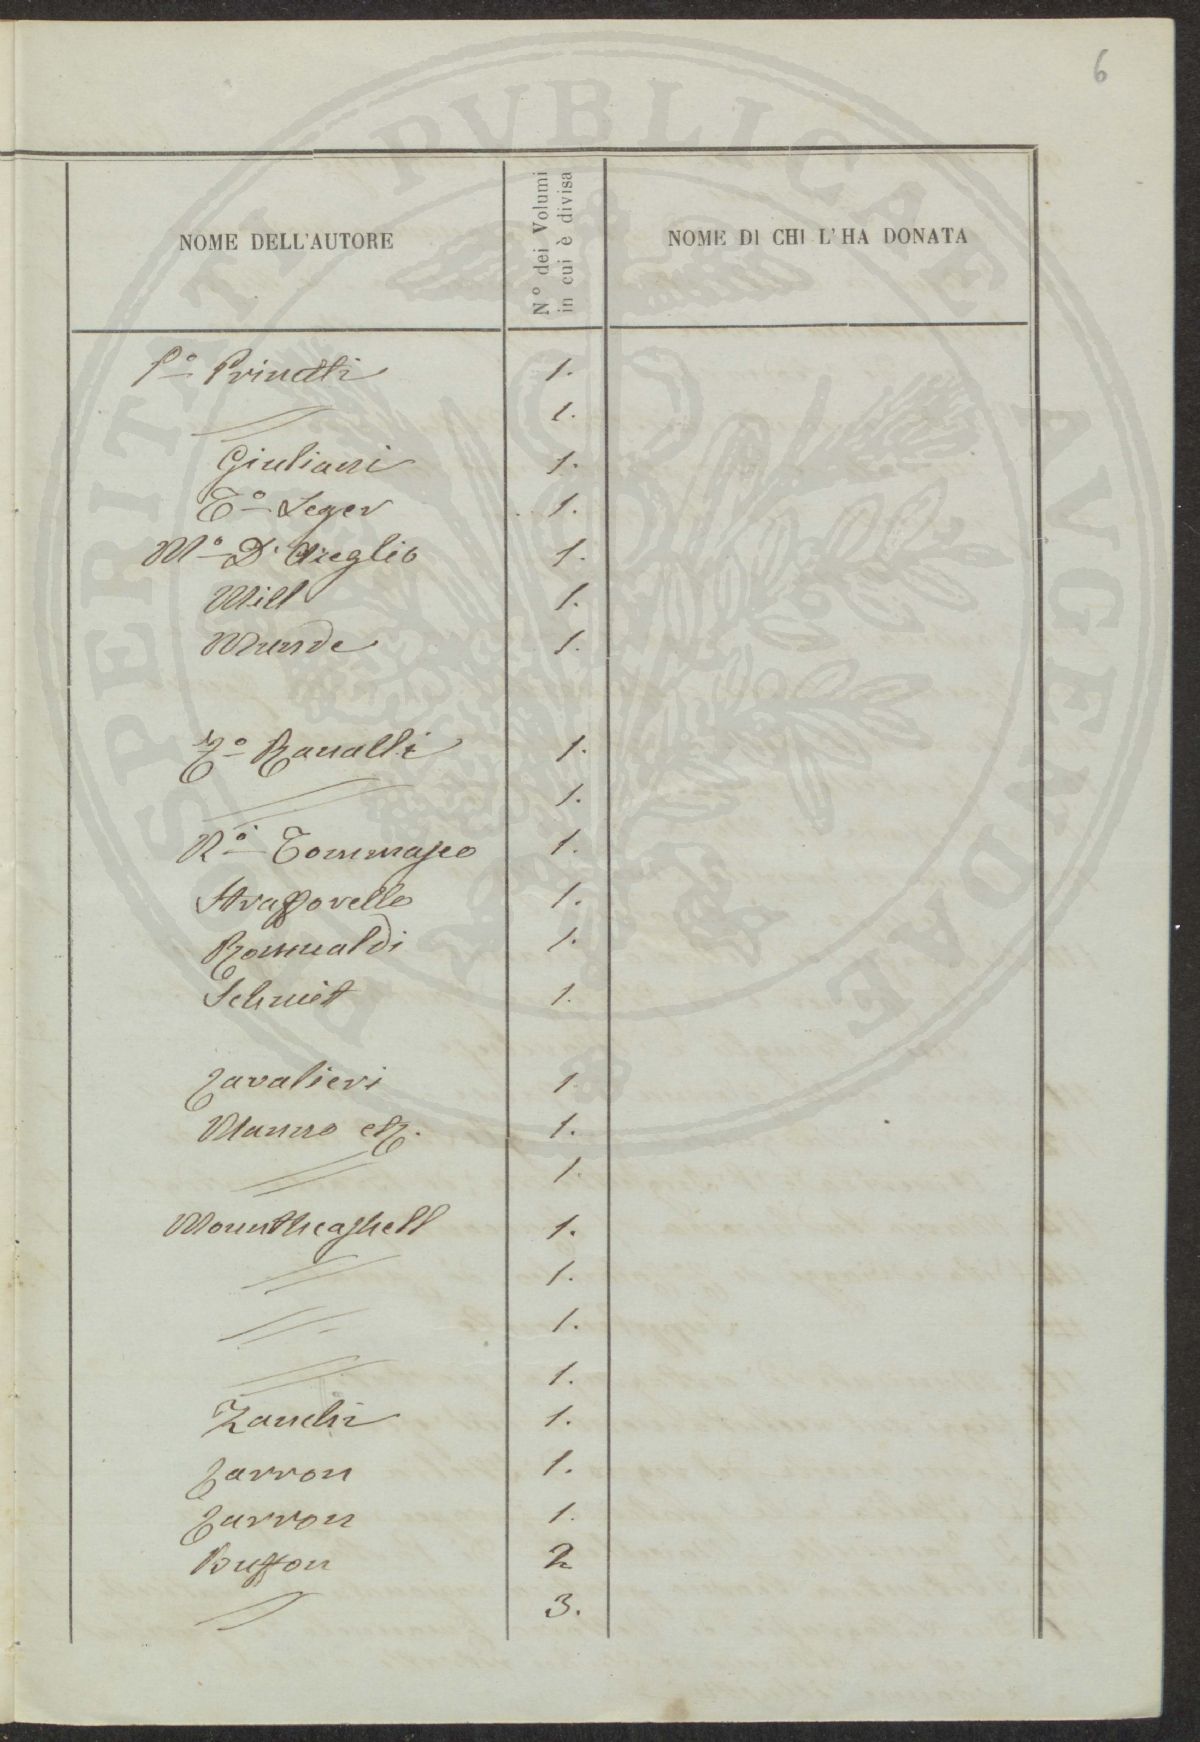 6
PROSPERITATI PVBLICAE AVGENDAE
NOME DELL'AUTORE
N° dei Volumi
in cui è divisa
NOME DI CHI L'HA DONATA
P° Prinetti 1.
〃 1.
Giuliani 1.
T° Leger 1.
M° D'Azeglio 1.
Mill 1.
Munde 1.
F° Ranalli 1.
〃 1.
N° Tommaseo 1.
Strafforello 1.
Romualdi 1.
Schmit 1.
Cavalieri 1
1.
〃 1.
1.
〃 1.
〃 1.
〃 1.
Zanchi 1.
Carron 1.
Carron 1.
Buffon 2
〃 3.